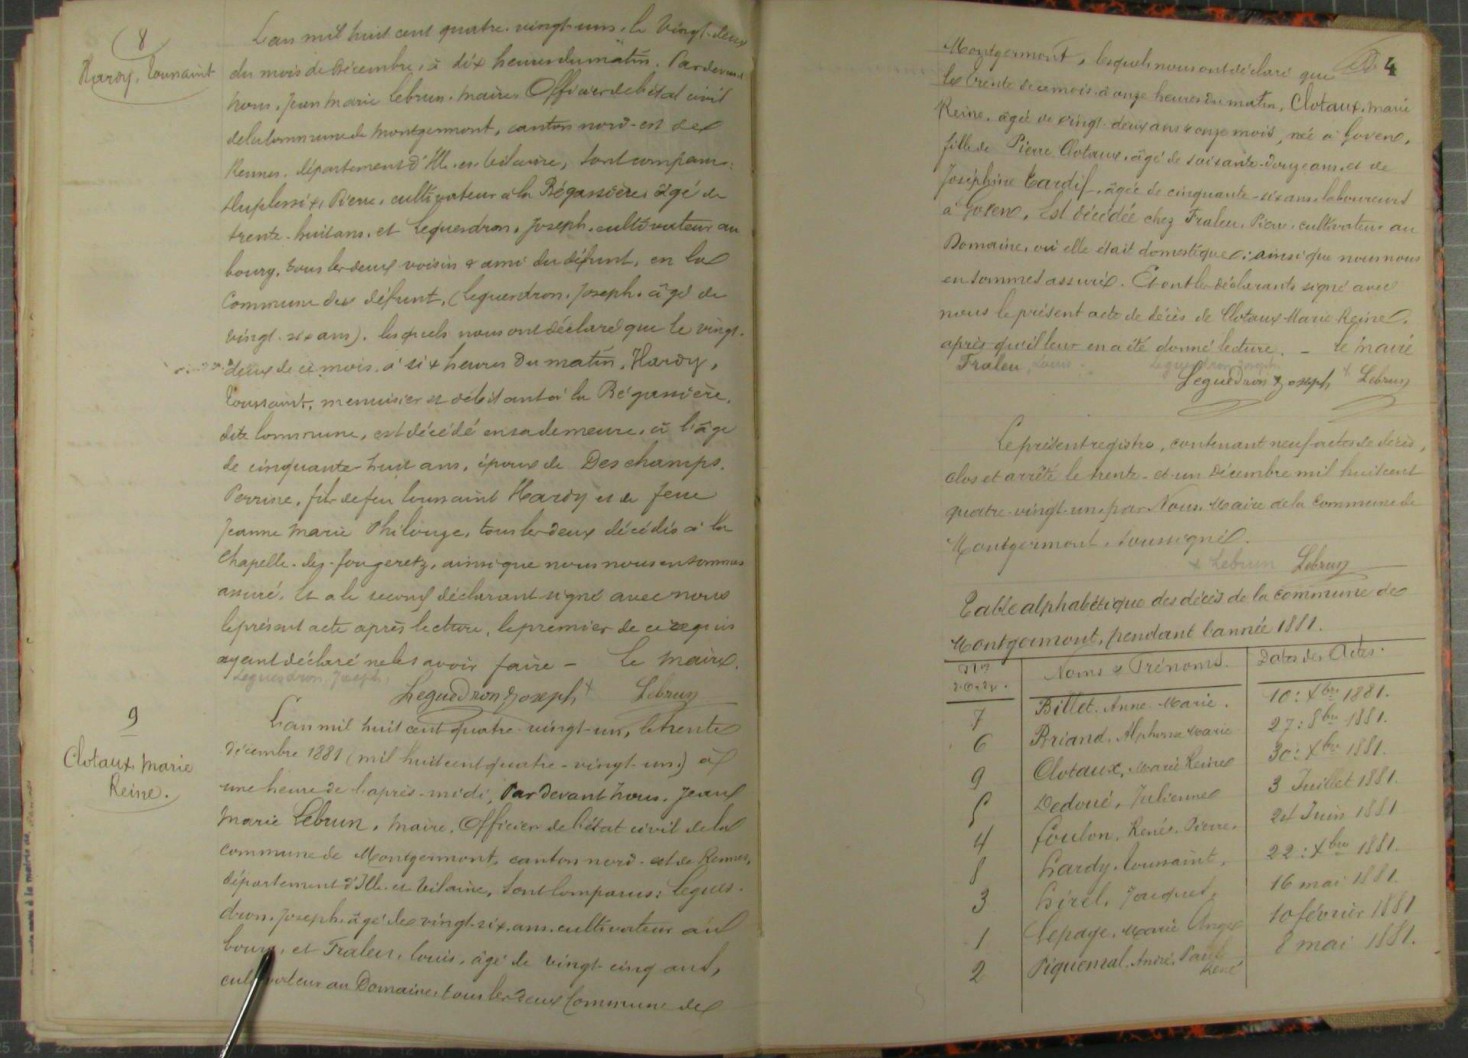 8
Hardy, Toussaint
L'an mil huit cent quatre-vingt-un, le vingt-deux
du mois de Décembre, à dix heures du matin. Par devant
nous, Jean Marie Lebrun, Maire, Officier de l'état civil
de la Commune de Montgermont, canton nord-est de
Rennes, département d'Ille-et-Vilaine, sont comparus:
Duplessix, Pierre, cultivateur à la Bégassière, âgé de
trente-huit ans, et Leguerdron, Joseph, cultivateur au
bourg, tous les deux voisin & ami du défunt, en la
Commune du défunt, (Leguerdron, Joseph, âgé de
vingt-six ans). lesquels nous ont déclaré que le vingt-
deux de ce mois, à six heures du matin, Hardy,
Toussaint, menuisier et débitant à la Bégassière,
dite Commune, est décédé en sa demeure, à l'âge
de cinquante-huit ans, époux de Deschamps,
Perrine, fils de feu Toussaint Hardy et de feue
Jeanne Marie Philouze, tous les deux décédés à la
Chapelle-des-fougeretz, ainsi que nous nous en sommes
assuré. Et a le second déclarant signé avec nous
le présent acte après lecture, le premier de ce requis
ayant déclaré ne le savoir faire – Le Maire.
Leguerdron, Joseph.
Leguedron Joseph Lebrun
9
Clotaux, Marie
Reine.
L'an mil huit cent quatre-vingt-un, le trente
Décembre 1881 (mil huit cent quatre-vingt-un) à
une heure de l'après-midi, Par devant nous, Jean
Marie Lebrun, Maire, Officier de l'état civil de la
commune de Montgermont, canton nord-est de Rennes,
département d'Ille-et-Vilaine, sont comparus: Leguer-
dron, Joseph, âgé de vingt-six ans, cultivateur au
bourg, et Fraleu, Louis, âgé de vingt-cinq ans,
cultivateur au Domaine, tous les deux Commune de
4
Montgermont, lesquels nous ont déclaré que
le trente de ce mois à onze heures du matin, Clotaux, Marie
Reine, âgée de vingt-deux ans & onze mois, née à Goven,
fille de Pierre Clotaux, âgé de soixante-douze ans, et de
Joséphine Tardif, âgée de cinquante-six ans, laboureurs
à Goven, est décédée chez Fraleu, Pierre, cultivateur au
Domaine, où elle était domestique: ainsi que nous nous
en sommes assuré. Et ont les déclarants signé avec
nous le présent acte de décès de Clotaux Marie Reine,
après qu'il leur en a été donné lecture. – Le Maire
Fraleu, Louis. Leguerdron Joseph
Leguedron Joseph Lebrun
Le présent registre, contenant neuf actes de décès,
clos et arrêté le trente-et-un Décembre mil huit cent
quatre-vingt-un, par Nous, Maire de la Commune de
Montgermont, soussigné.
Lebrun Lebrun
Table alphabétique des décès de la Commune de
Montgermont, pendant l'année 1881.
Nos d'ordre. Noms & Prénoms. Dates des Actes.
7 Billet, Anne-Marie. 10: Xbre 1881.
6 Briand, Alphonse Marie 27: 8bre 1881.
9 Clotaux, Marie Reine 30: Xbre 1881.
5 Dedoué, Julienne 3 Juillet 1881.
4 Foulon, René, Pierre. 24 Juin 1881
8 Hardy, Toussaint. 22: Xbre 1881.
3 Hirel, Jacques, 16 mai 1881.
1 Lepage, Marie Ange 10 février 1881
2 Piquemal, André, Paul René 8 mai 1881.